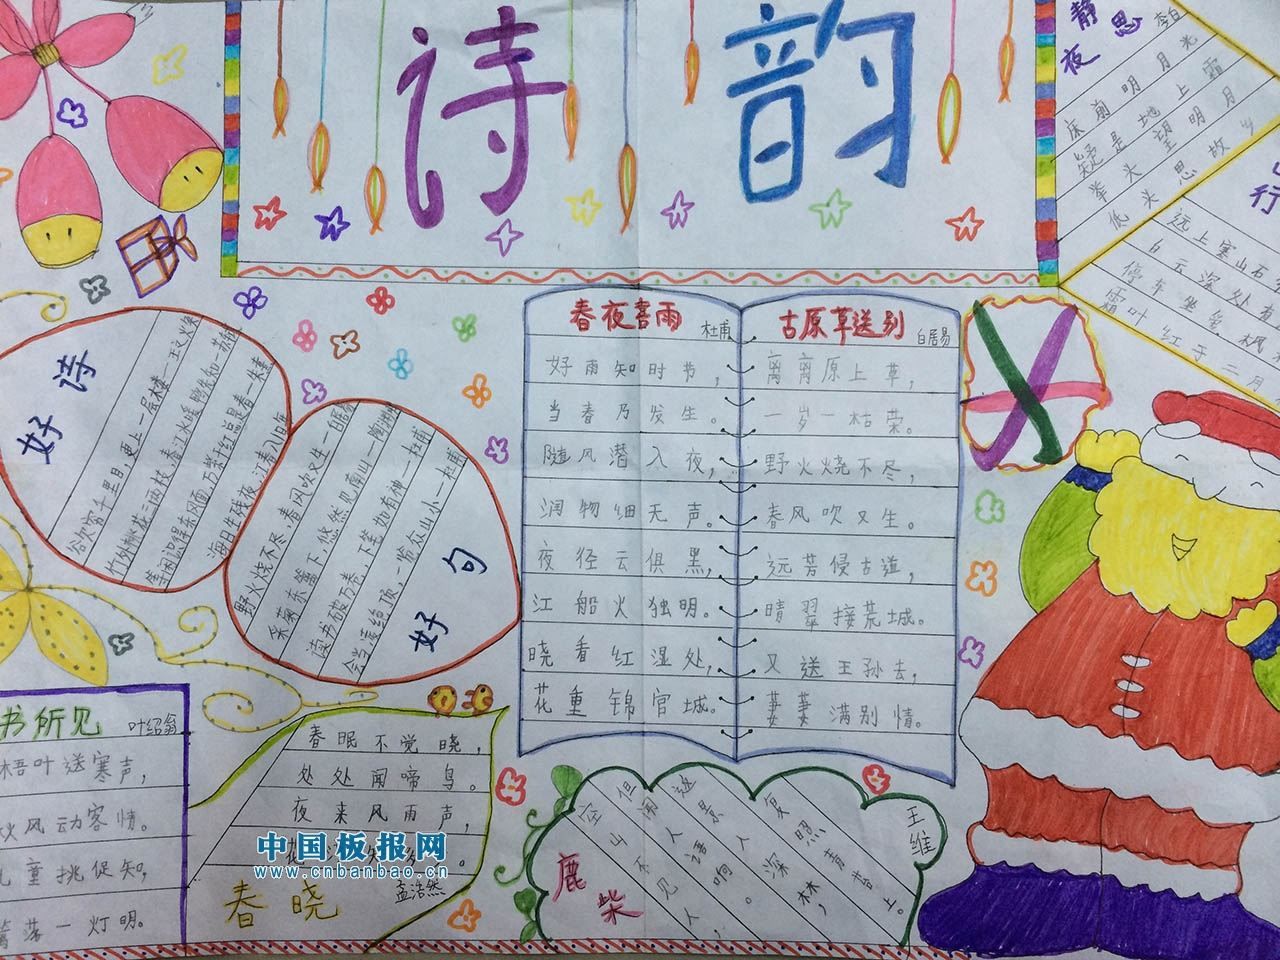 诗韵
静夜思
李白
床前明月光
疑是地上霜
举头望明月
低头思故
行
远上寒山石
白云深处有
停车坐爱枫
霜叶红于二月
好诗
欲穷千里目,更上一层楼一王之涣
竹外桃花三两枝,春江水暖鸭先知一苏轼
等闲识得东风面,万紫千红总是春一朱熹
海日生残夜,江春入旧年
野火烧不尽,春风吹又生一白居易
采菊东篱下,悠然见南山一陶渊明
读书破万卷,下笔如有神一杜甫
会当凌绝顶,一览众山小一杜甫
好句
春夜喜雨
杜甫
好雨知时节,
当春乃发生。
随风潜入夜,
润物细无声。
夜径云俱黑,
江船火独明。
晓看红湿处,
花重锦官城。
古原草送别
白居易
离离原上草,
一岁一枯荣。
野火烧不尽,
春风吹又生。
远芳侵古道,
晴翠接荒城。
又送王孙去,
萋萋满别情。
书所见
叶绍翁
梧叶送寒声,
秋风动客情。
儿童挑促知,
篱落一灯明。
春眠不觉晓,
处处闻啼鸟。
夜来风雨声,
春晓
孟浩然
中国板报网
www.cnbanbao.cn
鹿柴
王维
空山不见人,
但闻人语响。
返景入深林,
复照青苔上。